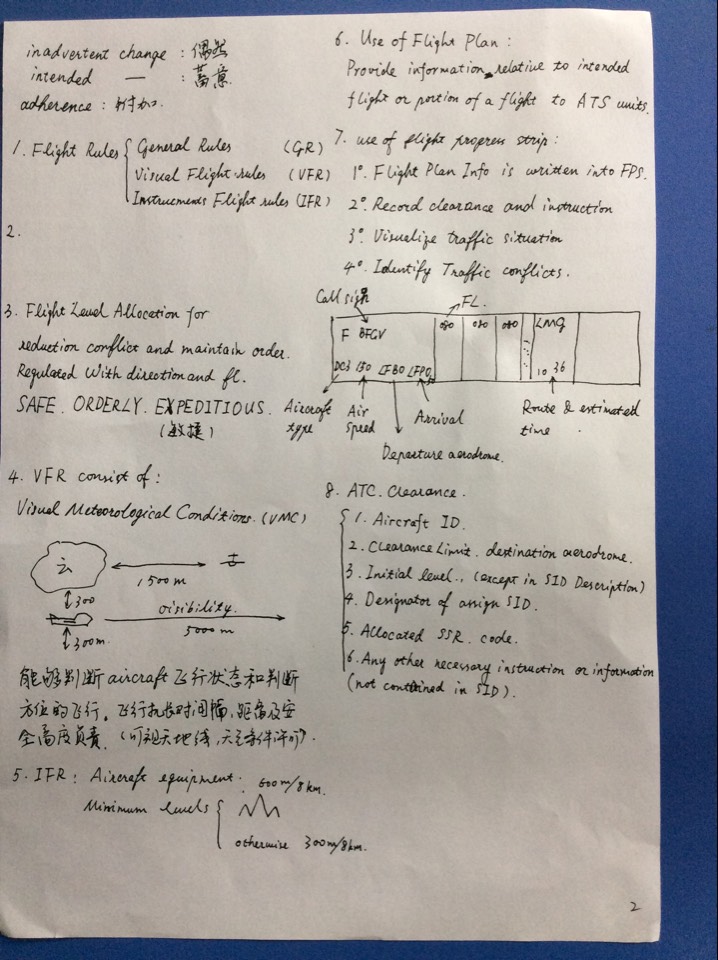 inadvertent change : 偶然
intended — : 蓄意
adherence : 附加.
1. Flight Rules { General Rules (GR)
Visual Flight rules (VFR)
Instrucments Flight rules (IFR)
2.
3. Flight Level Allocation for
reduction conflict and maintain order.
Regulated With direction and fl.
SAFE. ORDERLY. EXPEDITIOUS.
(敏捷)
4. VFR consist of :
Visual Meteorological Conditions. (VMC)
云
1500m
300
visibility.
5000m
300m.
能够判断 aircraft 飞行状态和判断
方位的飞行。飞行机长对间隔,距离及安
全高度负责. (可视天地线,天气条件许可).
5. IFR : Aircraft equipment.
Minimum levels {
600m/8km.
otherwise 300m/8km.
6. Use of Flight Plan :
Provide information relative to intended
flight or portion of a flight to ATS units.
7. use of flight progress strip :
1°. Flight Plan Info is written into FPS.
2°. Record clearance and instruction
3°. Visualize traffic situation
4°. Identify Traffic conflicts.
Call sign
FL.
F BFGV
080 080 080
LMG
DC3 150 LFBO LFPO
10 36
Aircraft type
Air speed
Arrival
Route & estimated time
Departure aerodrome.
8. ATC. Clearance.
1. Aircraft ID.
2. Clearance Limit. destination aerodrome.
3. Initial level., (except in SID Description)
4. Designator of assign SID.
5. Allocated SSR. code.
6. Any other necessary instruction or information
(not contained in SID).
2